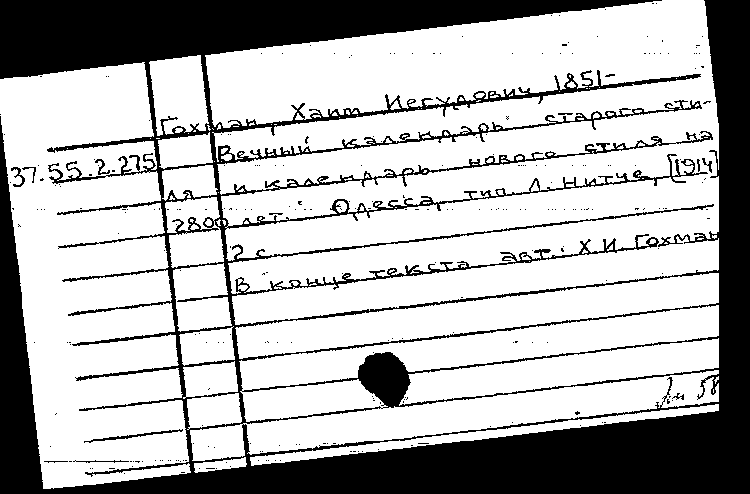 Гохман, Хаим Иегудович, 1851-
37.55.2.275 Вечный календарь старого сти-
ля и календарь нового стиля на
2800 лет. Одесса, тип. Л. Нитче, [1914]
2 с.
В конце текста авт.: Х.И. Гохман
58